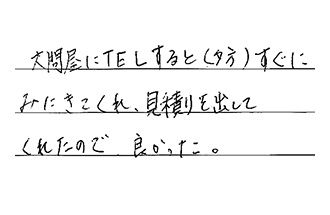 大問屋にTELすると(夕方)すぐに
みにきてくれ、見積りを出して
くれたので 良かった。